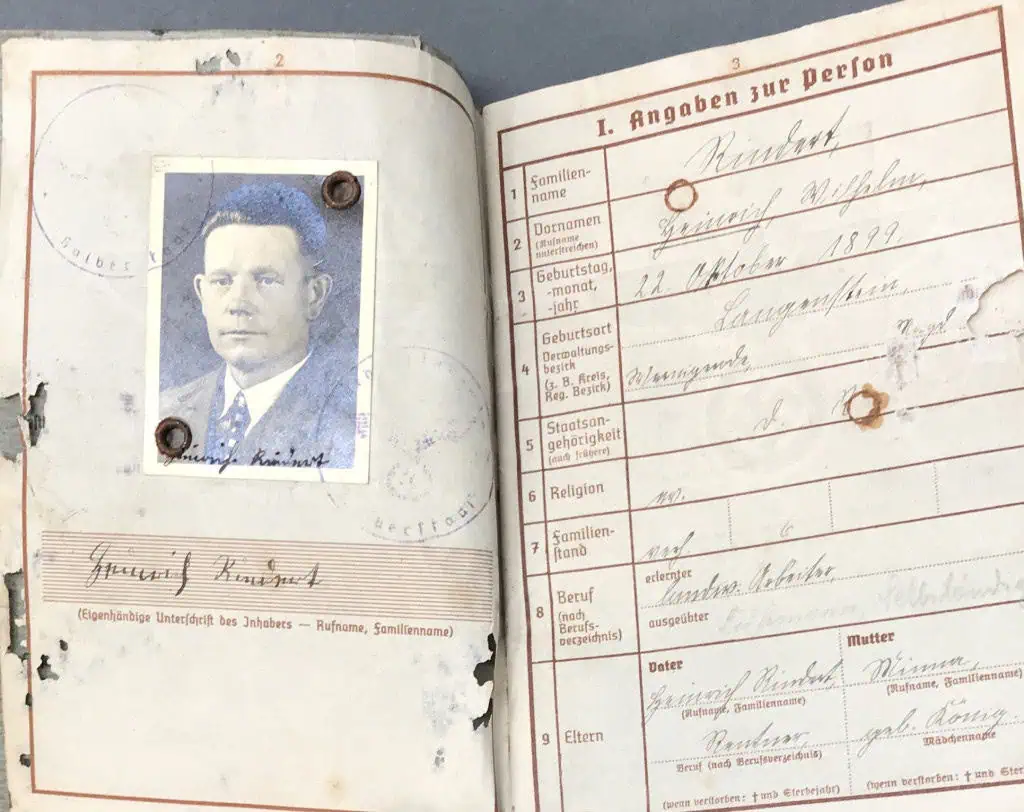 2
Halberstadt
Heinrich Rindert
Halberstadt
Heinrich Rindert
(Eigenhändige Unterschrift des Inhabers — Rufname, Familienname)
3
I. Angaben zur Person
1 Familien-
name
Rindert,
2 Vornamen
(Rufname
unterstreichen)
Heinrich, Wilhelm,
3 Geburtstag,
-monat,
-jahr
22. Oktober 1899.
4 Geburtsort
Verwaltungs-
bezirk
(z. B. Kreis,
Reg. Bezirk)
Langenstein,
Magd.
5 Staatsan-
gehörigkeit
(auch frühere)
d.
6 Religion
ev.
7 Familien-
stand
verh. 6
8 Beruf
(nach
Berufs-
verzeichnis)
erlernter
landw. Arbeiter,
ausgeübter
Selbständig
9 Eltern
Vater
Heinrich Rindert,
(Rufname, Familienname)
Rentner,
Beruf (nach Berufsverzeichnis)
(wenn verstorben: † und Sterbejahr)
Mutter
Minna,
(Rufname, Familienname)
geb. König.
Mädchenname
(wenn verstorben: † und Sterbej